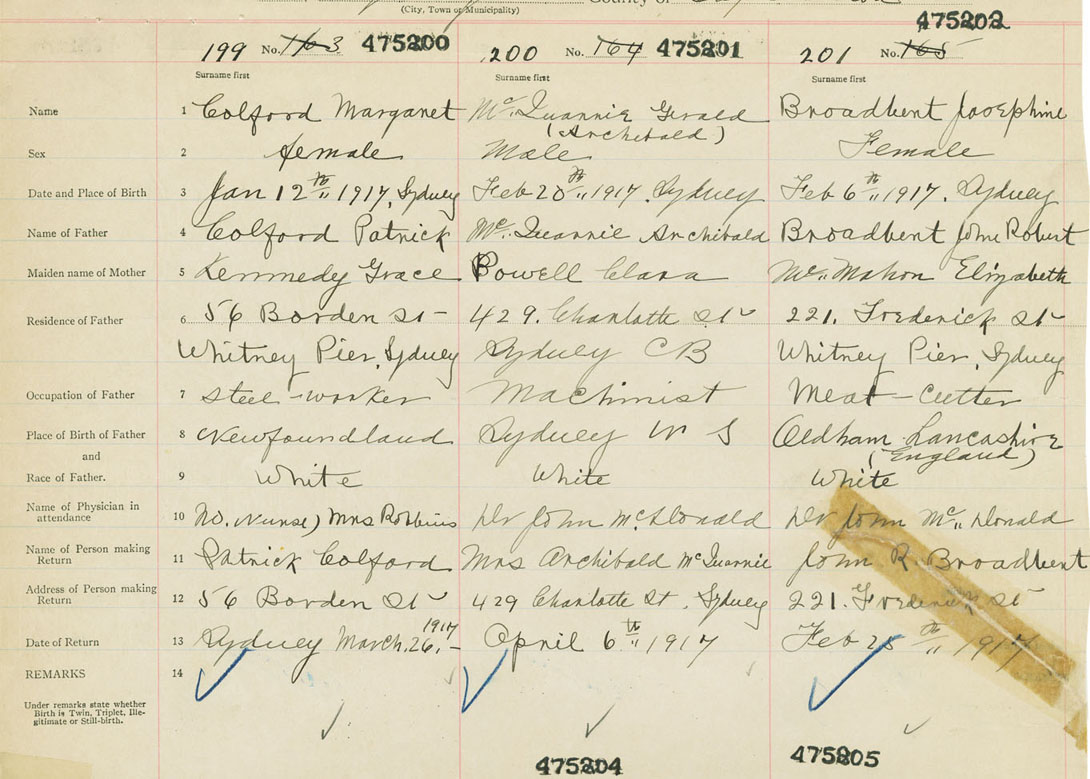 (City, Town or Municipality)
475202
199 No. 163 475200
200 No. 164 475201
201 No. 165
Surname first Surname first Surname first
Name 1 Colford Margaret Mc. Quarrie Gerald Broadbent Josephine
(Archibald)
Sex 2 female Male Female
Date and Place of Birth 3 Jan 12th 1917, Sydney Feb 20th 1917. Sydney Feb 6th 1917. Sydney
Name of Father 4 Colford Patrick Mc. Quarrie Archibald Broadbent John Robert
Maiden name of Mother 5 Kennedy Grace Powell Clara Mc. Mahon Elizabeth
Residence of Father 6 56 Borden St 429. Charlotte St 221. Frederick St
Whitney Pier, Sydney Sydney CB Whitney Pier, Sydney
Occupation of Father 7 Steel-worker Machinist Meat-Cutter
Place of Birth of Father 8 Newfoundland Sydney N S Oldham Lancashire
and (England)
Race of Father. 9 White White White
Name of Physician in attendance 10 No. (Nurse) Mrs Robbins Dr John McDonald Dr John Mc. Donald
Name of Person making Return 11 Patrick Colford Mrs Archibald McQuarrie John R. Broadbent
Address of Person making Return 12 56 Borden St 429 Charlotte St, Sydney 221. Frederick St
Date of Return 13 Sydney March, 26, 1917 April 6th 1917 Feb th 1917
REMARKS 14
Under remarks state whether
Birth is Twin, Triplet, Ille-
gitimate or Still-birth.
475204 475205